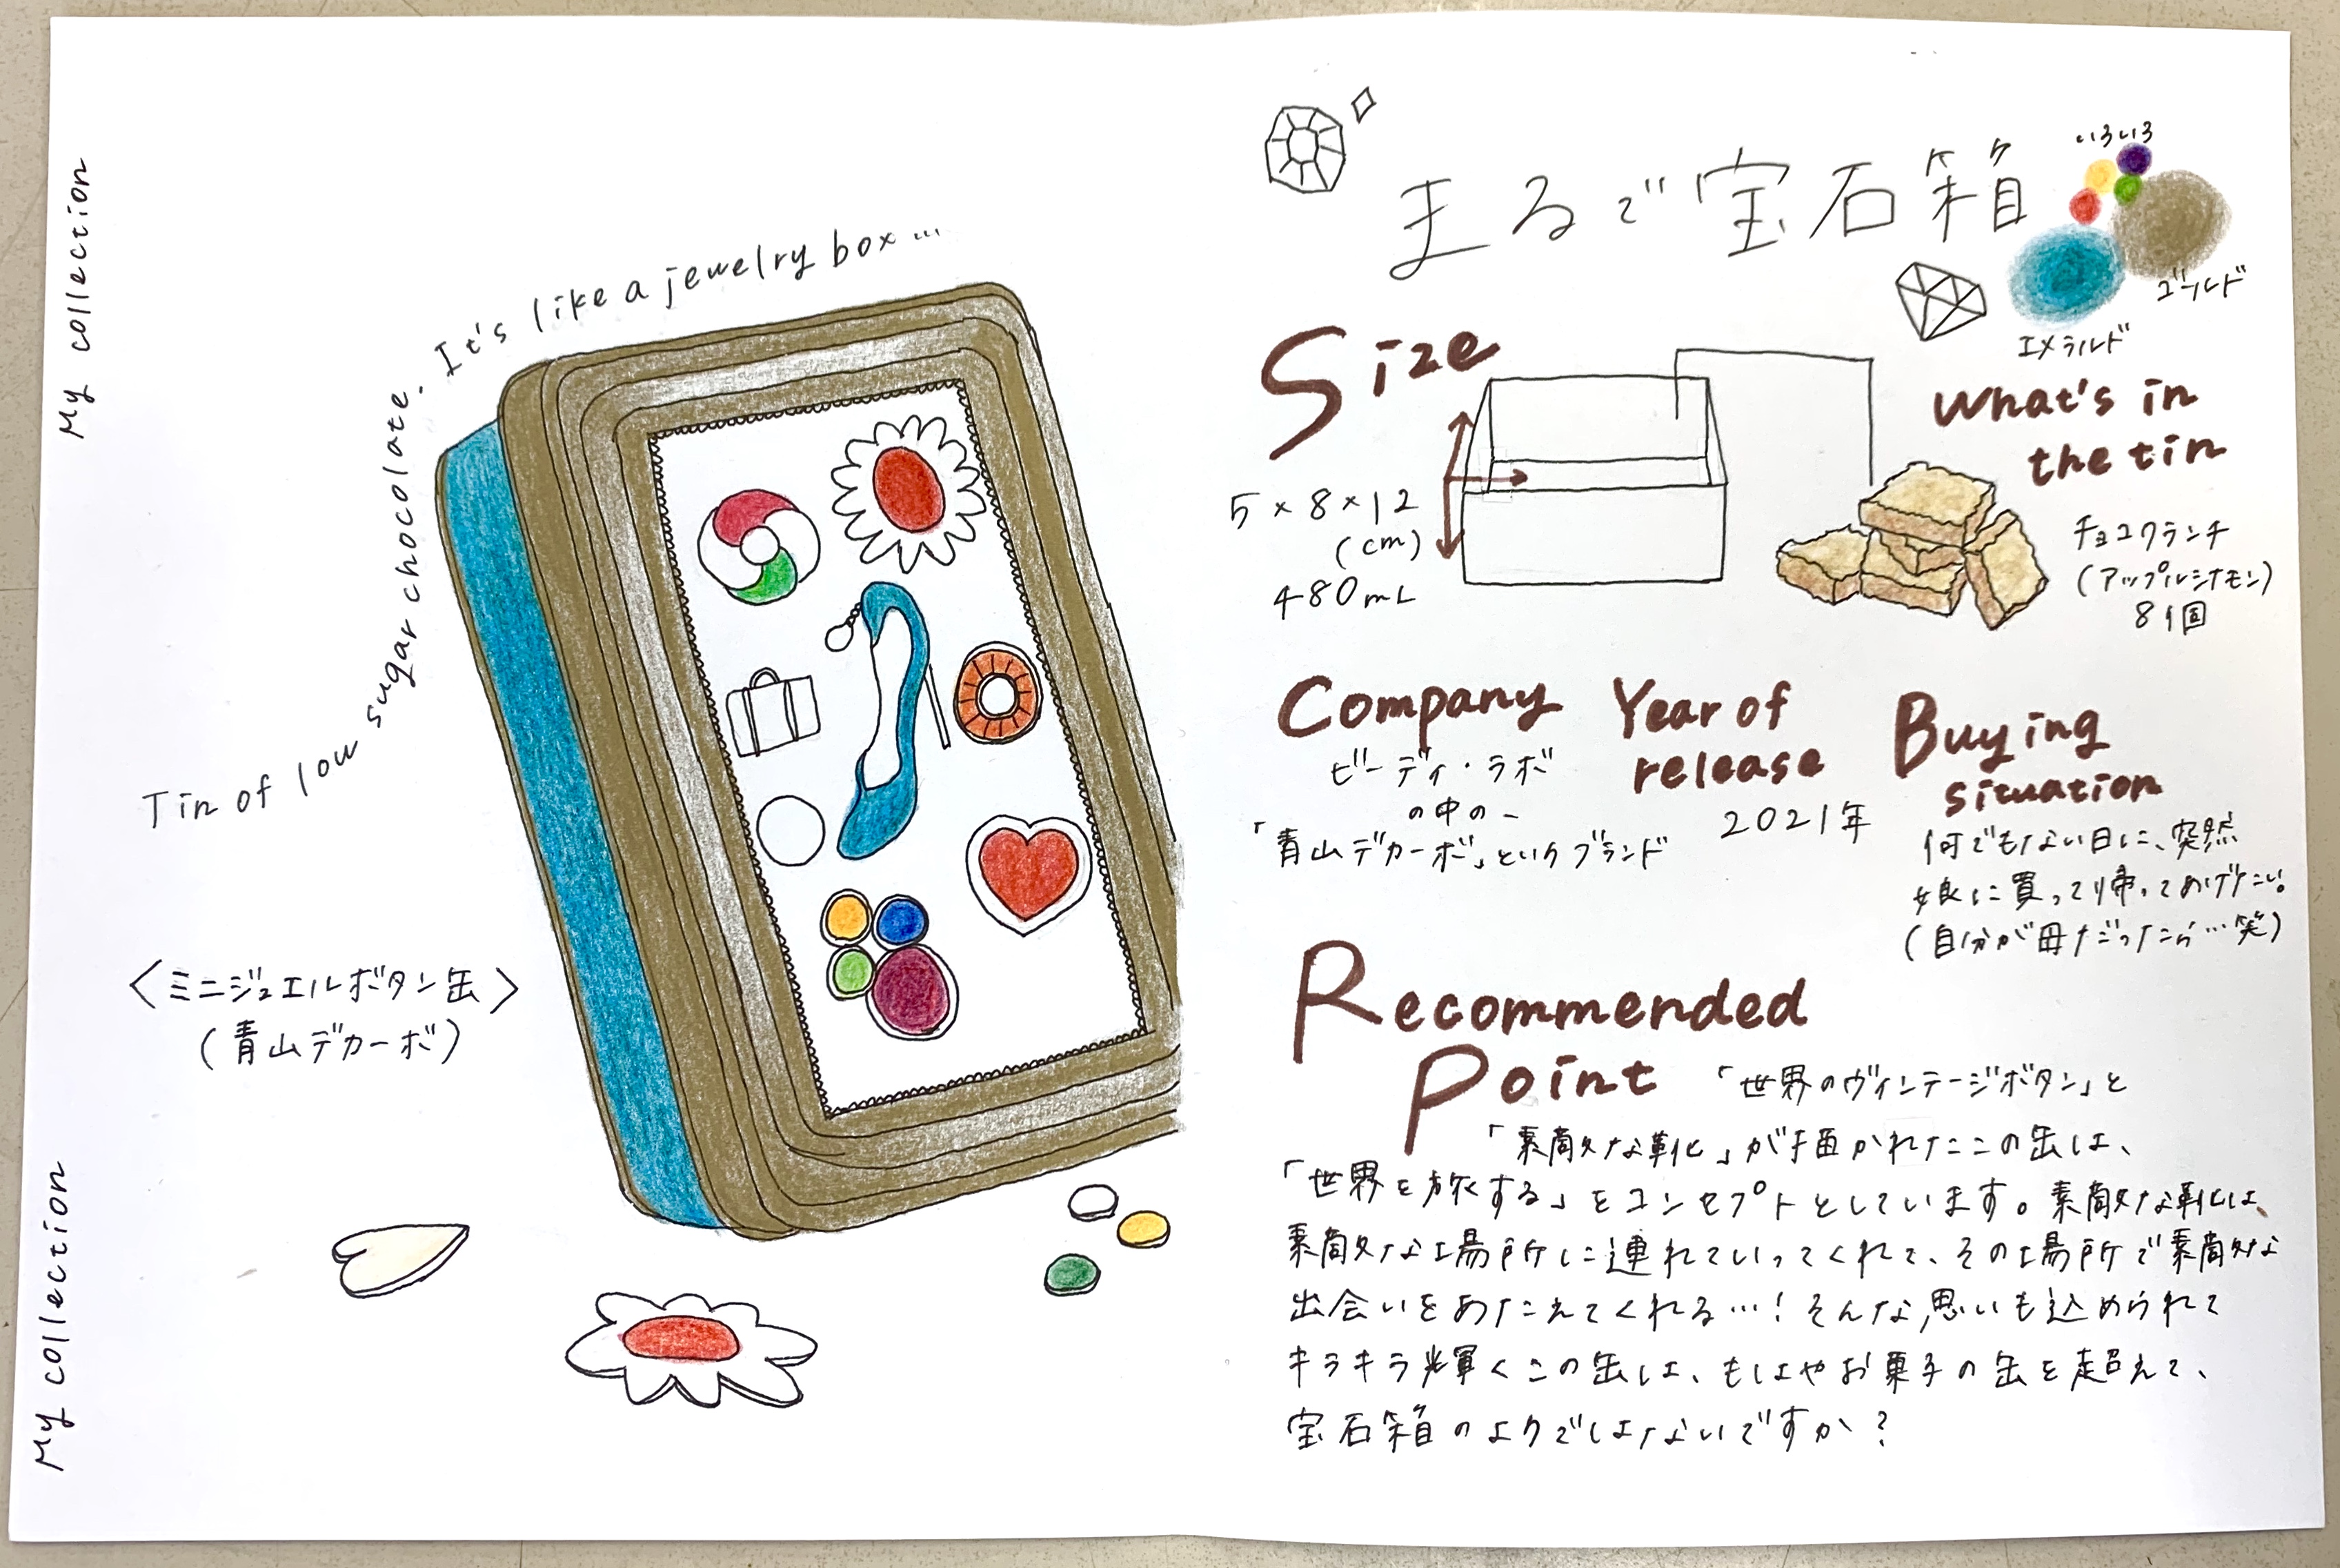 My collection
Tin of low sugar chocolate. It's like a jewelry box…
〈ミニジュエルボタン缶〉
(青山デカーボ)
My collection
まるで宝石箱
いろいろ
ゴールド
エメラルド
Size
5×8×12
(cm)
480mL
What's in
the tin
チョコクランチ
(アップルシナモン)
8個
Company
ビーディ・ラボ
の中の
「青山デカーボ」というブランド
Year of
release
2021年
Buying
situation
何でもない日に、突然
娘に買って帰ってあげたい。
(自分が母だったら…笑)
Recommended
Point
「世界のヴィンテージボタン」と
「素敵な靴」が描かれたこの缶は、
「世界を旅する」をコンセプトとしています。素敵な靴は、
素敵な場所に連れていってくれて、その場所で素敵な
出会いをあたえてくれる…!そんな思いも込められて
キラキラ輝くこの缶は、もはやお菓子の缶を超えて、
宝石箱のようではないですか?